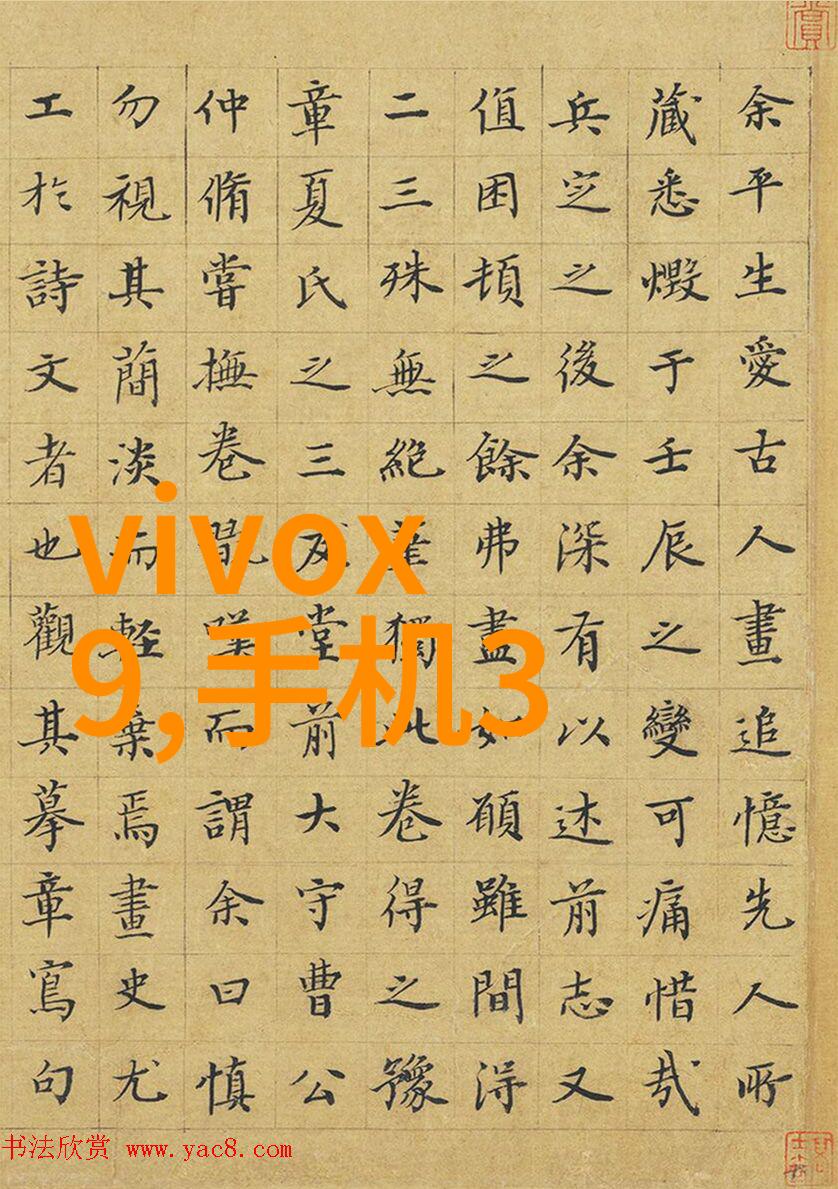 余平生愛古人畫追憶先人所
藏悉燬于壬辰之變可痛惜哉
兵定之後余深有以述前志又
值困頓之餘弗盡如願雖間得
二三殊無絶獨此卷得之豫
章夏氏之三友堂前大守曹公
仲脩嘗撫卷嘆而謂余曰慎
勿視其簡淡而輕棄焉畫史尤
工於詩文者也觀其摹章寫句
vivox
9,手机3
书法欣赏 www.yac8.com